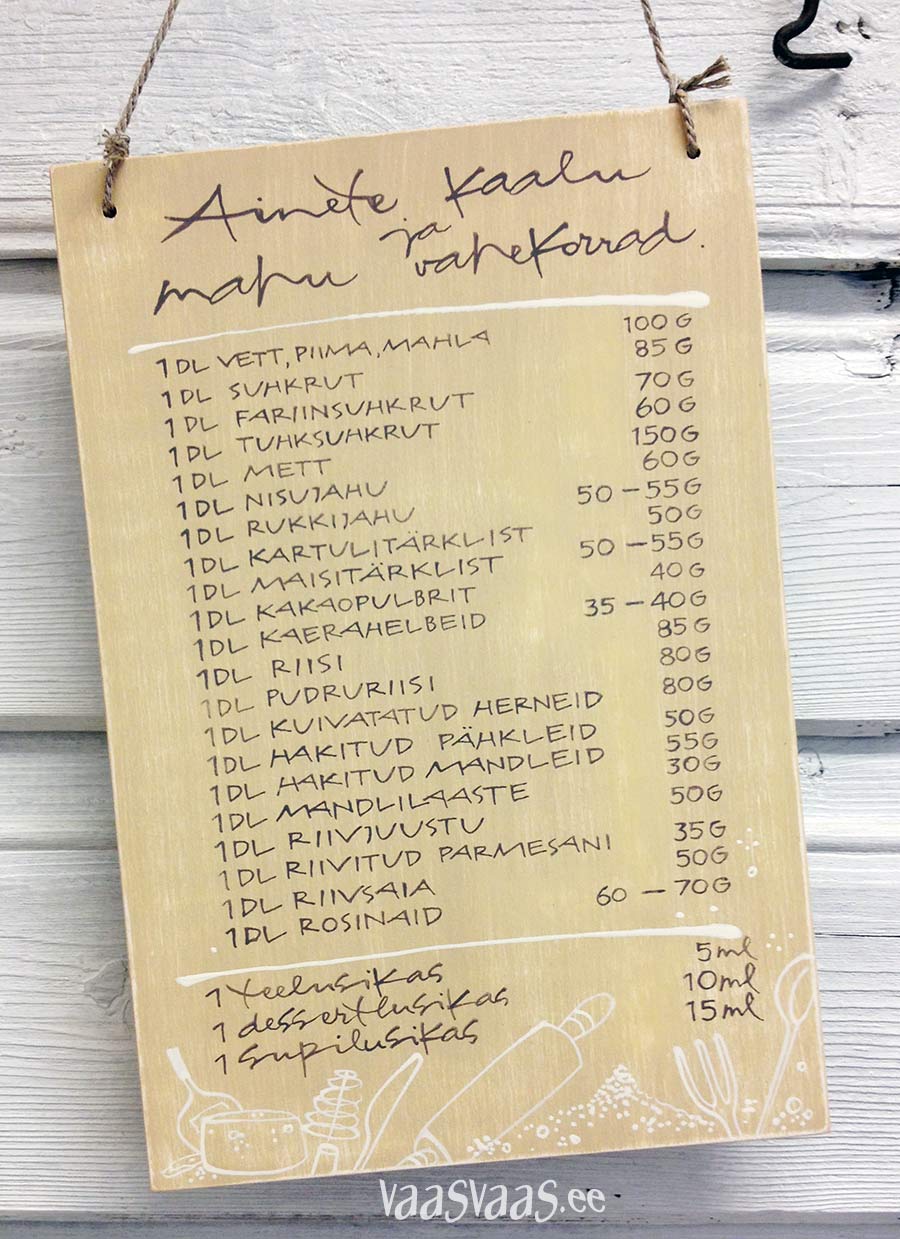 Ainete kaalu
ja
mahu vahekorrad.
1DL VETT, PIIMA, MAHLA 100G
1DL SUHKRUT 85G
1DL FARIINSUHKRUT 70G
1DL TUHKSUHKRUT 60G
1DL METT 150G
1DL NISUJAHU 60G
1DL RUKKIJAHU 50-55G
1DL KARTULITÄRKLIST 50G
1DL MAISITÄRKLIST 50-55G
1DL KAKAOPULBRIT 40G
1DL KAERAHELBEID 35-40G
1DL RIISI 85G
1DL PUDRURIISI 80G
1DL KUIVATATUD HERNEID 80G
1DL HAKITUD PÄHKLEID 50G
1DL HAKITUD MANDLEID 55G
1DL MANDLILAASTE 30G
1DL RIIVJUUSTU 50G
1DL RIIVITUD PARMESANI 35G
1DL RIIVSAIA 50G
1DL ROSINAID 60-70G
1 teelusikas 5ml
1 dessertlusikas 10ml
1 supilusikas 15ml
vaasvaas.ee